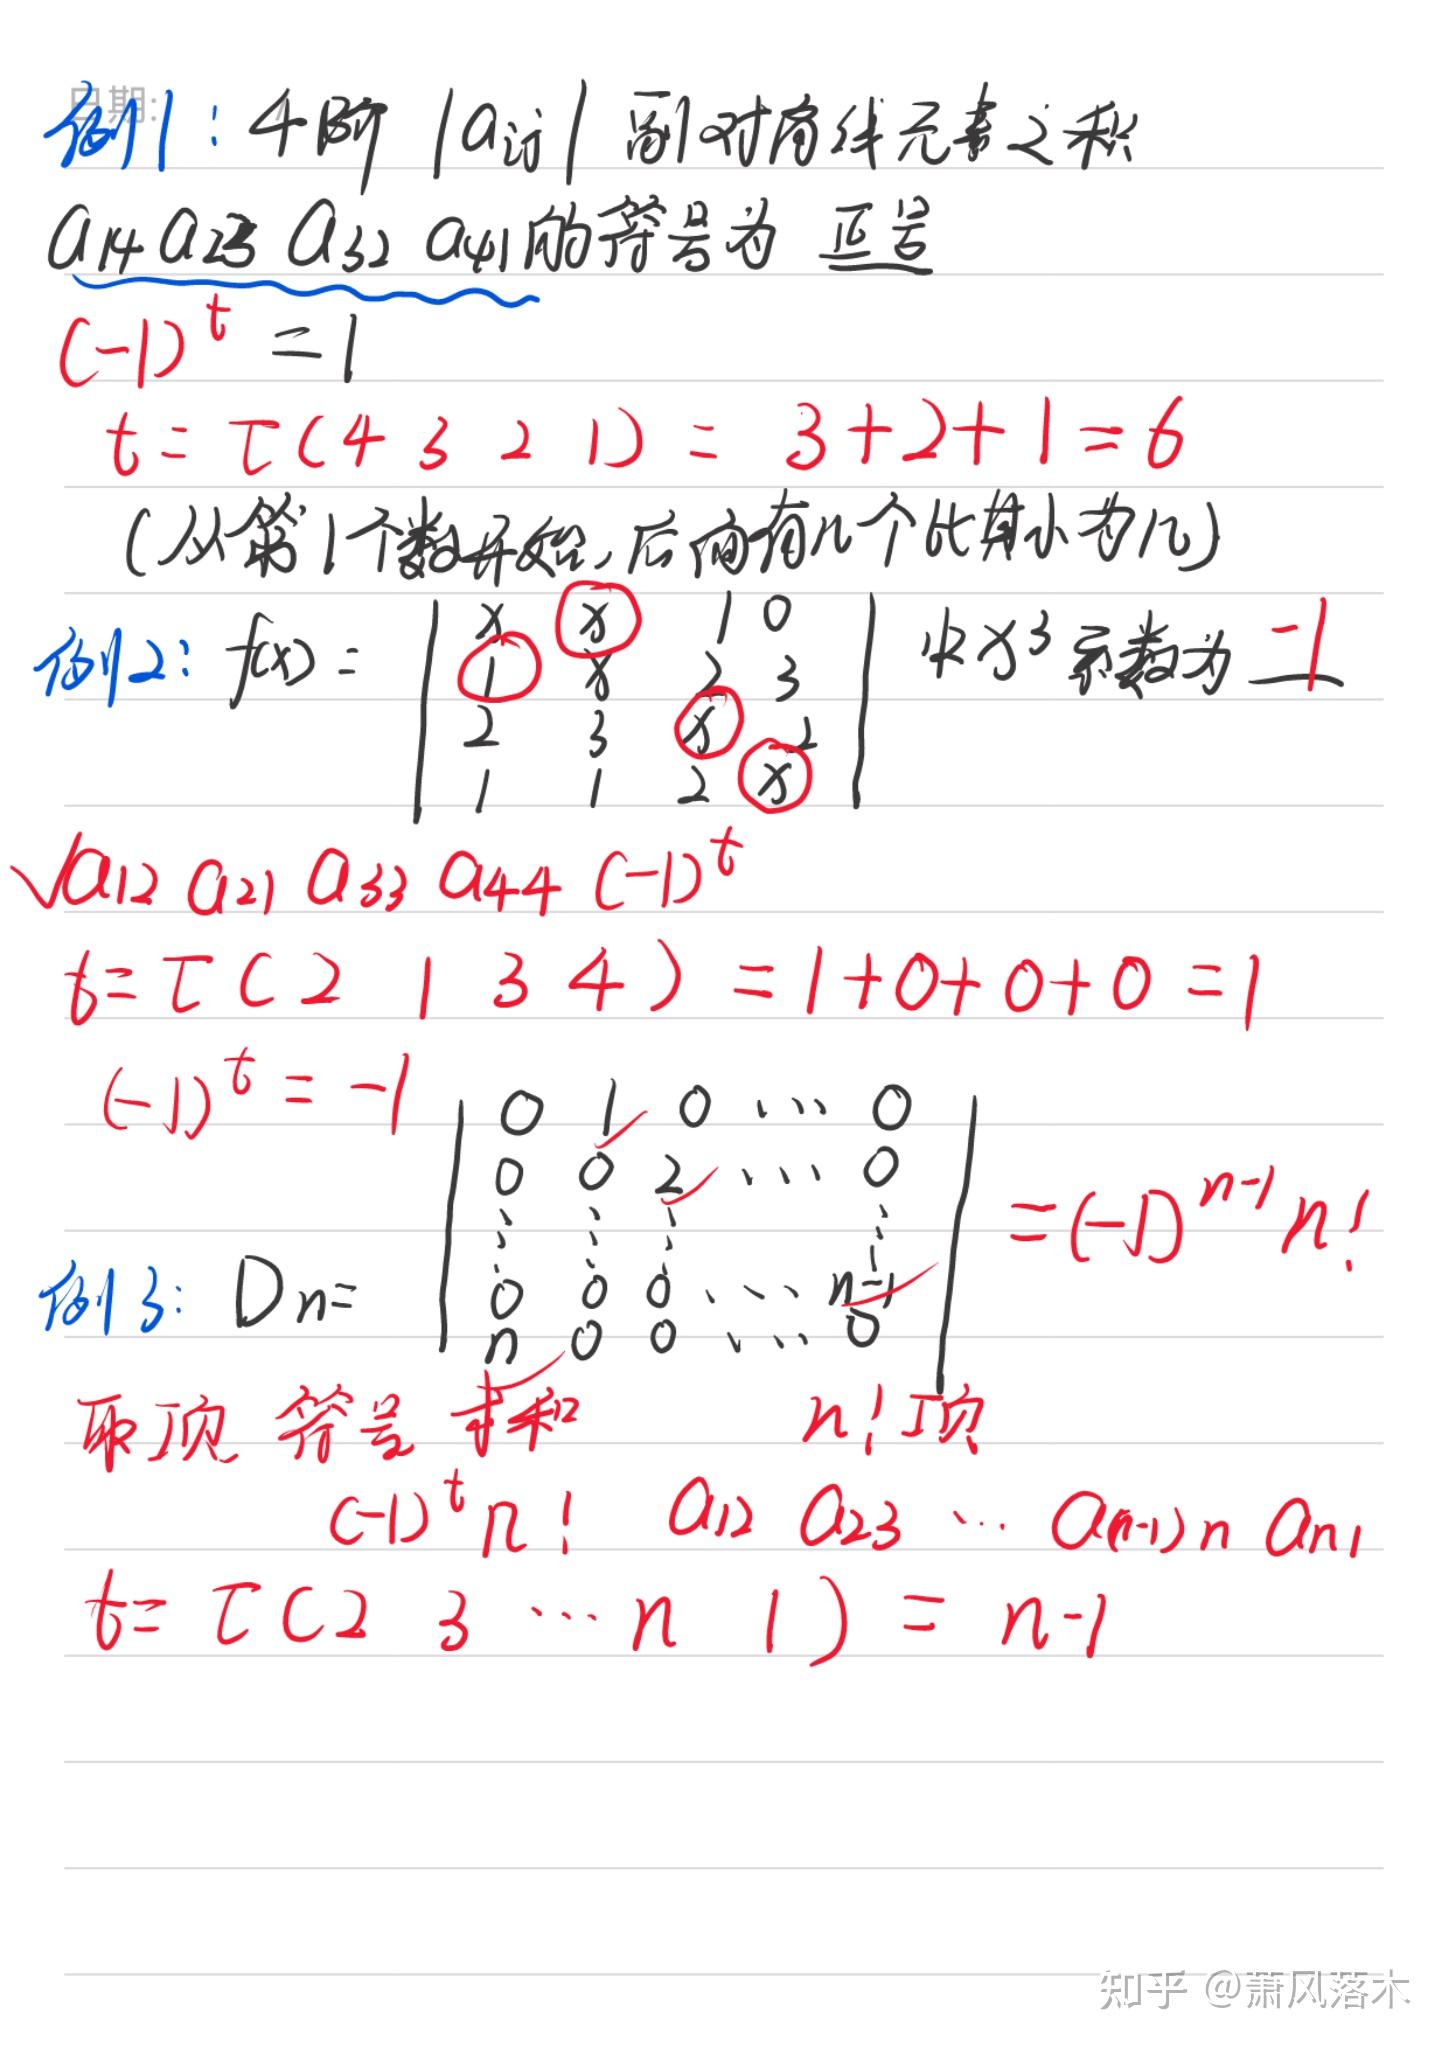 日期:
例1: 4阶 |aij| 副对角线元素之积
a14 a23 a32 a41 的符号为 正号
(-1)^t = 1
t = τ(4 3 2 1) = 3+2+1=6
(从第1个数开始,后面有几个比其小为几)
例2: f(x) = | x x 1 0 | 中x³系数为 -1
1 x 2 3
2 3 x 2
1 1 2 x
√a12 a21 a33 a44 (-1)^t
t = τ(2 1 3 4) = 1+0+0+0 = 1
(-1)^t = -1
例3: Dn = | 0 1 0 ⋯ 0 | = (-1)^{n-1} n!
0 0 2 ⋯ 0
⋮ ⋮ ⋮ ⋮
0 0 0 ⋯ n-1
n 0 0 ⋯ 0
取项 符号 求和 n!项
(-1)^t n! a12 a23 ⋯ a(n-1)n an1
t = τ(2 3 ⋯ n 1) = n-1
知乎 @萧风落木